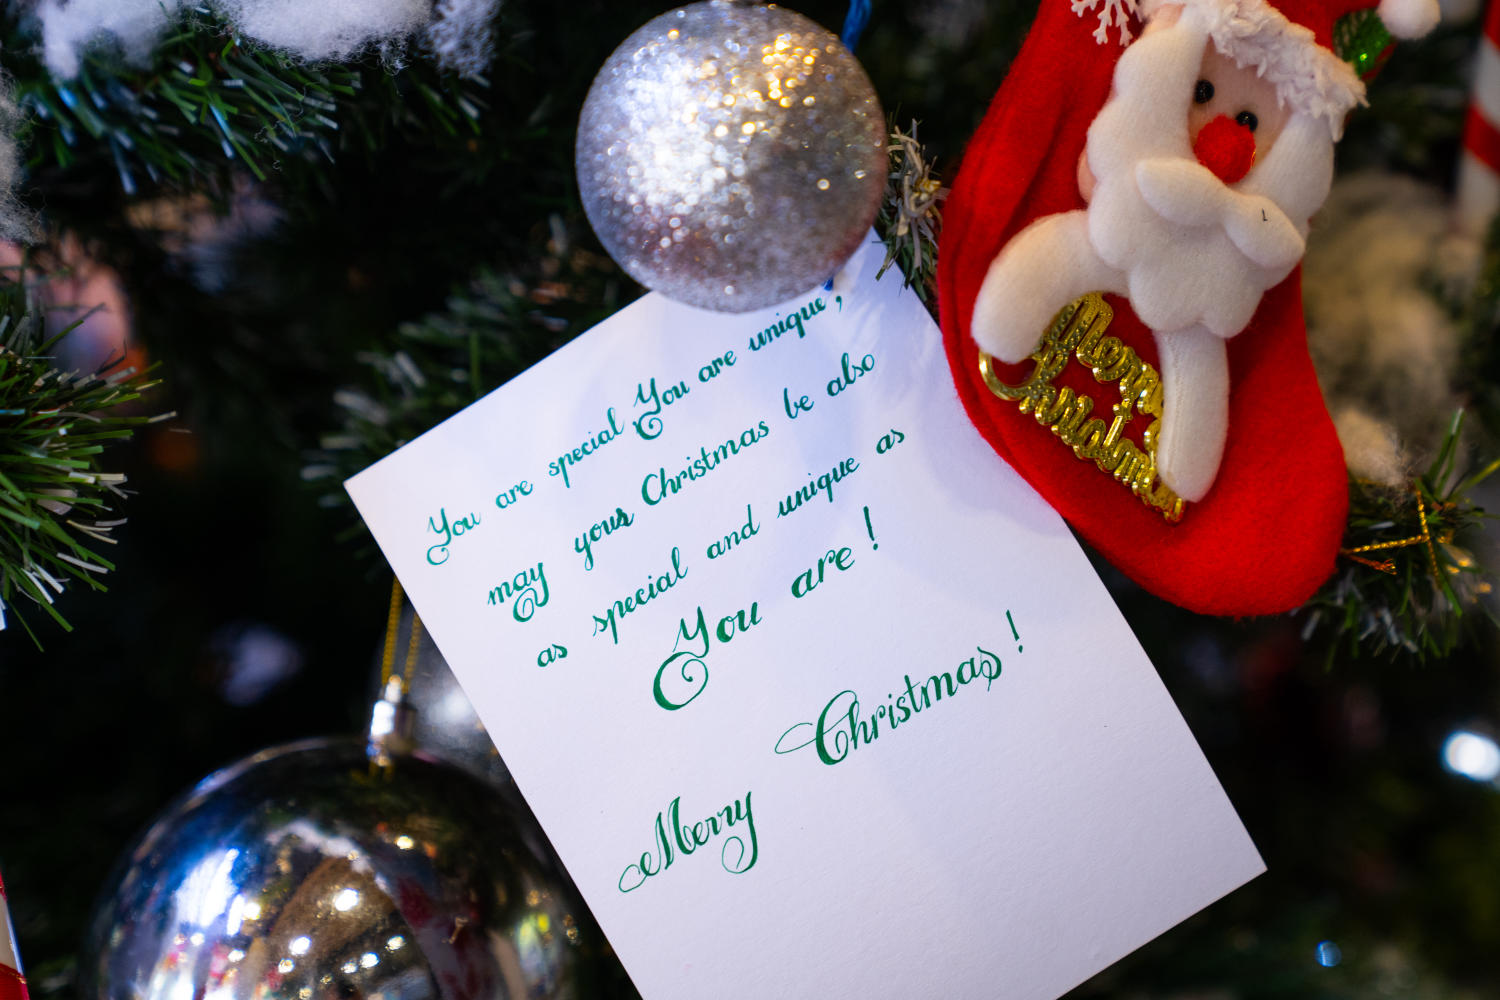 You are special You are unique,
may your Christmas be also
as special and unique as
You are!
Merry Christmas!
Merry
Christmas